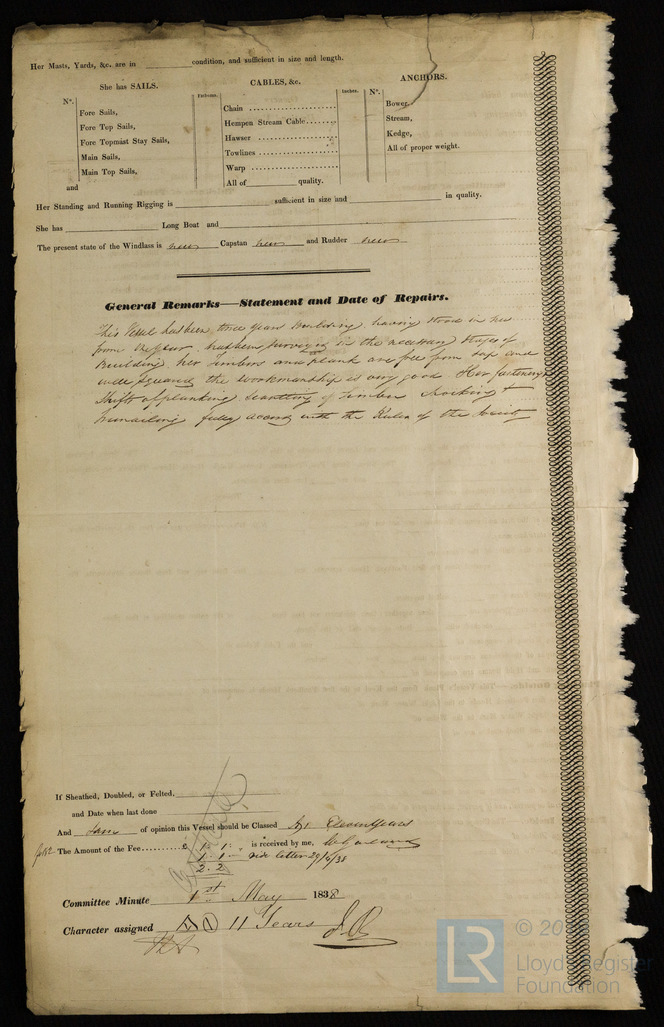 Her Masts, Yards, &c. are in condition, and sufficient in size and length.
She has SAILS. CABLES, &c. ANCHORS.
N°. Fathoms. Inches. N°.
Fore Sails, Chain Bower,
Fore Top Sails, Hempen Stream Cable Stream,
Fore Topmast Stay Sails, Hawser Kedge,
Main Sails, Towlines All of proper weight.
Main Top Sails, Warp
and All of quality.
Her Standing and Running Rigging is sufficient in size and in quality.
She has Long Boat and
The present state of the Windlass is new Capstan new and Rudder new
General Remarks—Statement and Date of Repairs.
This Vessel has been three years building, having stood in her
from the year, has been surveyed in the necessary stages of
building, her Timbers and plank are free from sap and
well squared the workmanship is very good Her fastenings
Shifts of planking, scantling of timber &
fully accord with the Rules of the Society
If Sheathed, Doubled, or Felted.
and Date when last done
And I am of opinion this Vessel should be Classed A1 Eleven Years
The Amount of the Fee £ 1. 1. is received by me,
1. 1. vide letter 29/4/38
2. 2
Committee Minute 1st May 1838
Character assigned A 1 11 Years
LR © 20
Lloyd's Register
Foundation